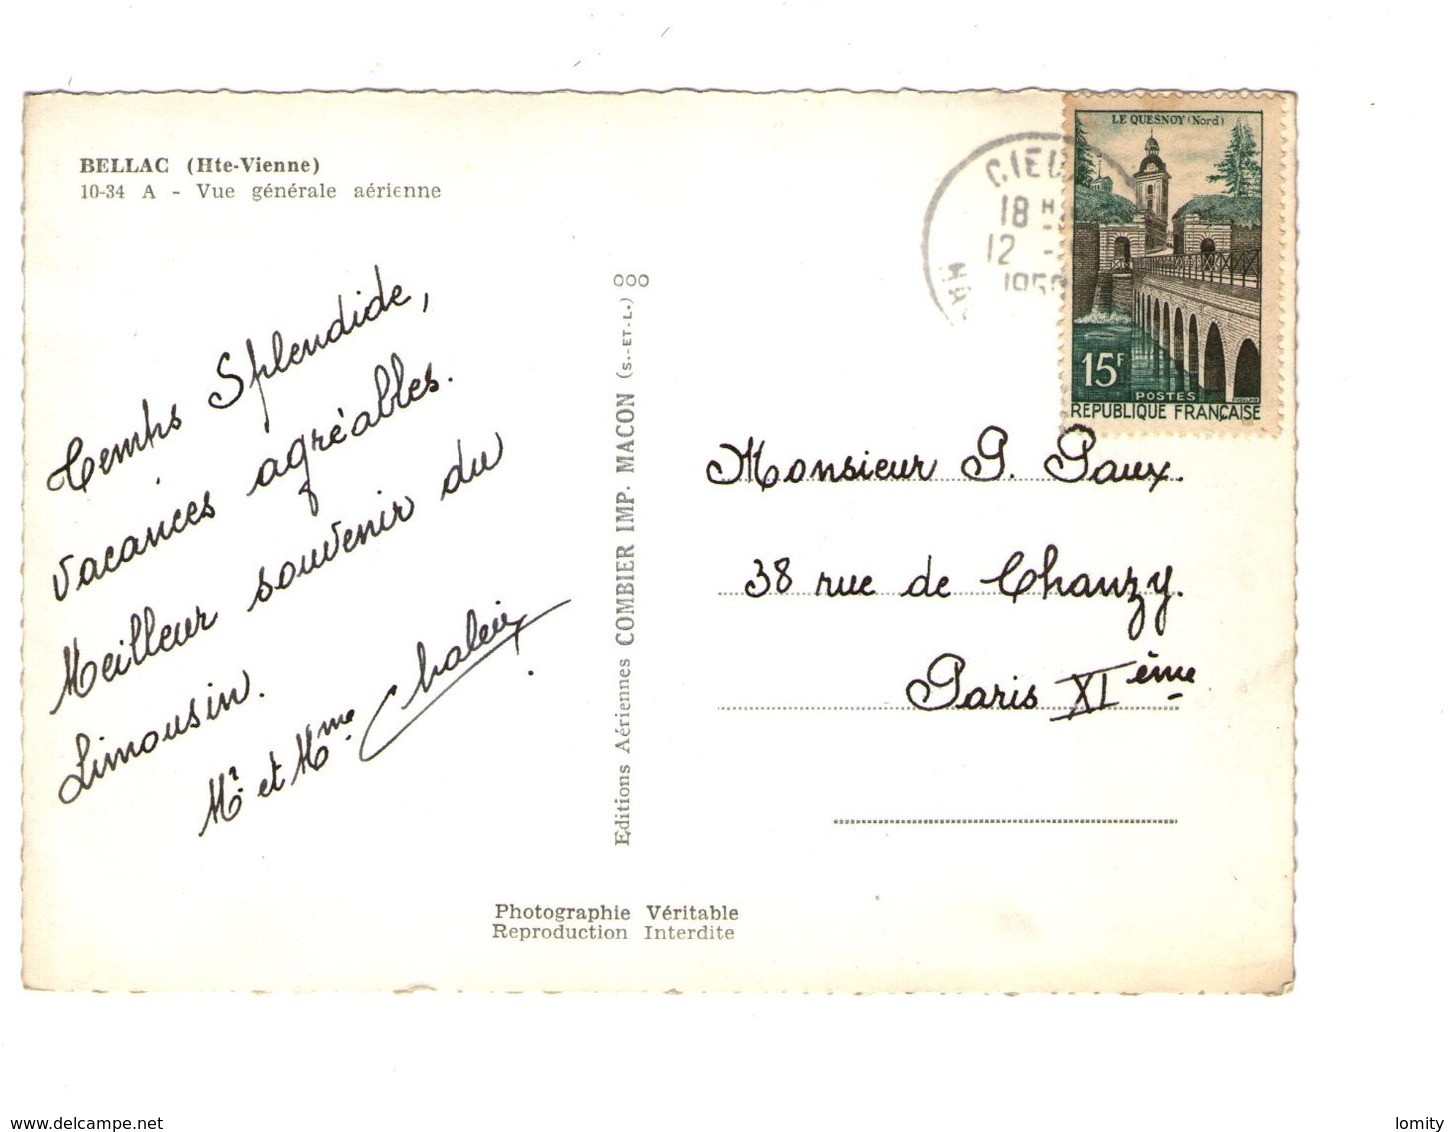 BELLAC (Hte-Vienne)
10-34 A - Vue générale aérienne
Temps Splendide,
vacances agréables.
Meilleur souvenir du
Limousin.
Mr. et Mme.
Editions Aériennes COMBIER IMP. MACON (S.-ET-L.)
CIEU
18 H
12 -
LE QUESNOY (Nord)
15F
POSTES
REPUBLIQUE FRANÇAISE
Monsieur P. Paux.
38 rue de Chanzy.
Paris XIème
Photographie Véritable
Reproduction Interdite
www.delcampe.net
lomity